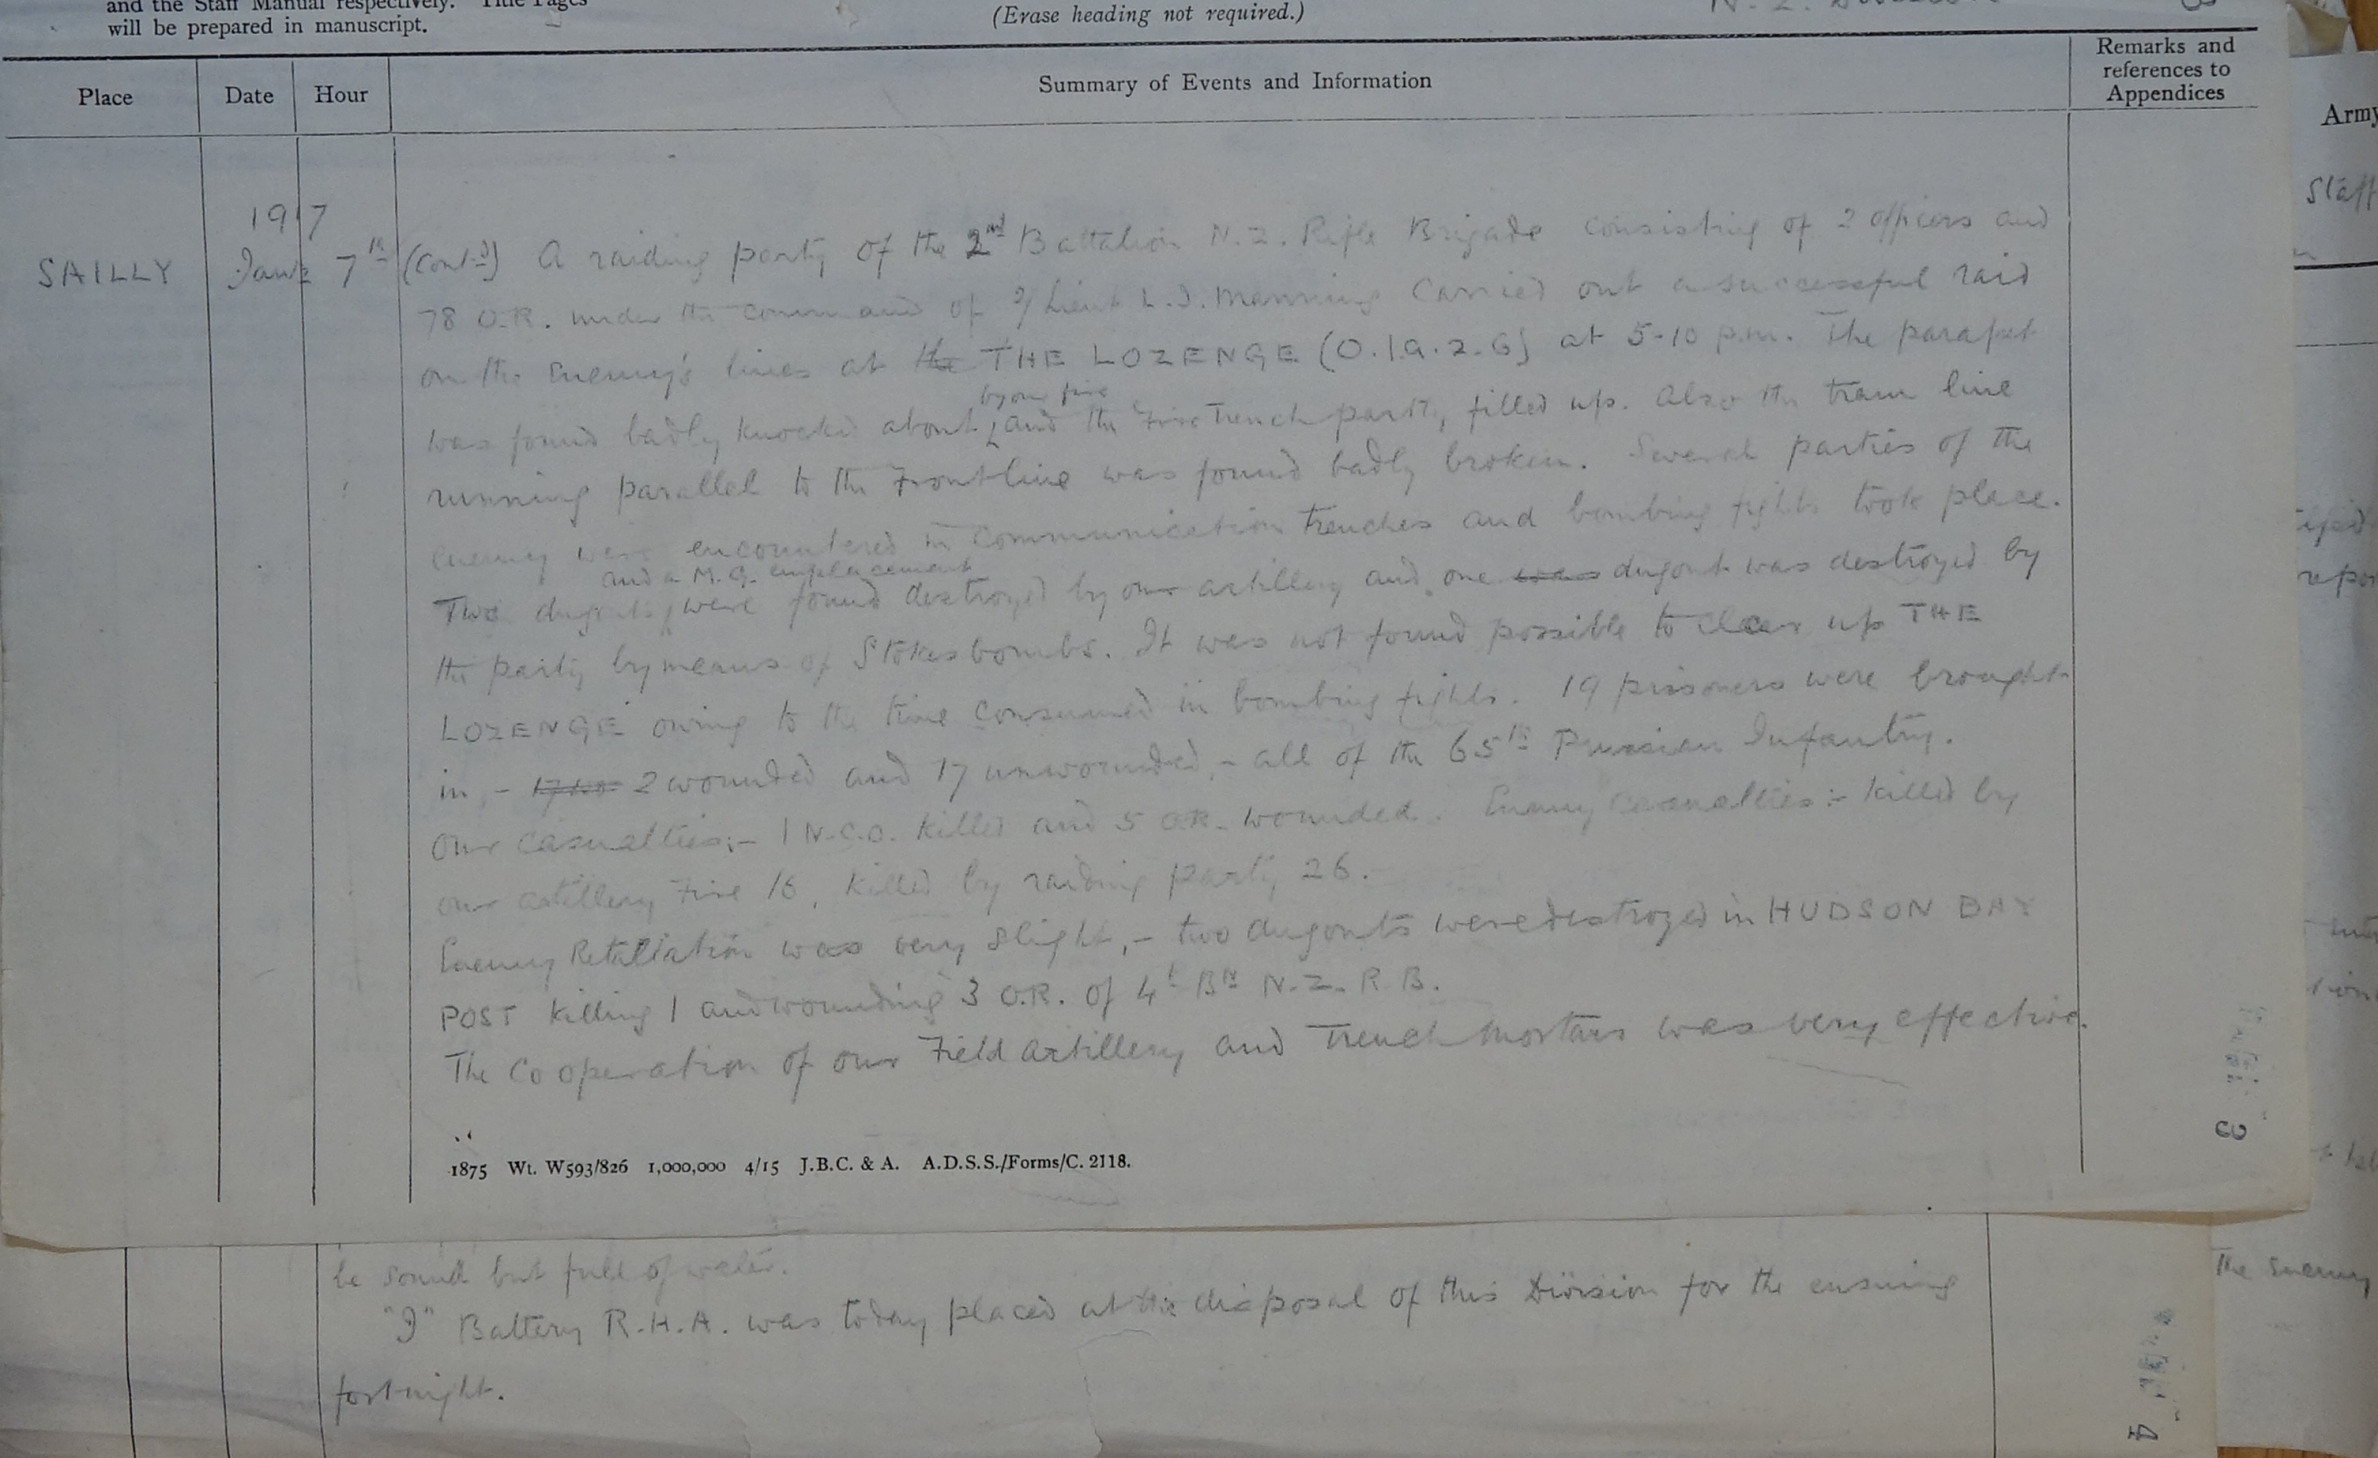 and the Staff Manual respectively. Title Pages
will be prepared in manuscript.
(Erase heading not required.)
Place Date Hour Summary of Events and Information Remarks and references to Appendices
1917
SAILLY Jany 7th (Contd) A raiding party of the 2nd Battalion N.Z. Rifle Brigade consisting of 2 officers and
78 O.R. under the command of 2/Lieut L.I. Manning carried out a successful raid
on the Enemy's lines at the THE LOZENGE (O.1.a.2.6) at 5-10 p.m. The parapet
was found badly knocked about by our fire and the Fire Trench partly filled up. Also the tram line
running parallel to the Front line was found badly broken. Several parties of the
enemy were encountered in communication trenches and bombing fights took place.
Two dugouts and a M.G. emplacement were found destroyed by our artillery and one was dugout was destroyed by
the party by means of Stokes bombs. It was not found possible to clear up THE
LOZENGE owing to the time consumed in bombing fights. 19 prisoners were brought
in, - 2 wounded and 17 unwounded, - all of the 65th Prussian Infantry.
Our casualties:- 1 N.C.O. killed and 5 O.R. wounded. Enemy casualties:- killed by
our artillery Fire 16, killed by raiding party 26.
Enemy Retaliation was very slight, - two dugouts were destroyed in HUDSON BAY
POST killing 1 and wounding 3 O.R. of 4th Bn N.Z.R.B.
The Cooperation of our Field artillery and Trench Mortars was very effective.
1875 Wt. W593/826 1,000,000 4/15 J.B.C. & A. A.D.S.S./Forms/C. 2118.
3
be sound but full of water.
"I" Battery R.H.A. was today placed at the disposal of this Division for the ensuing
fortnight.
4
Army
Staff
The Enemy